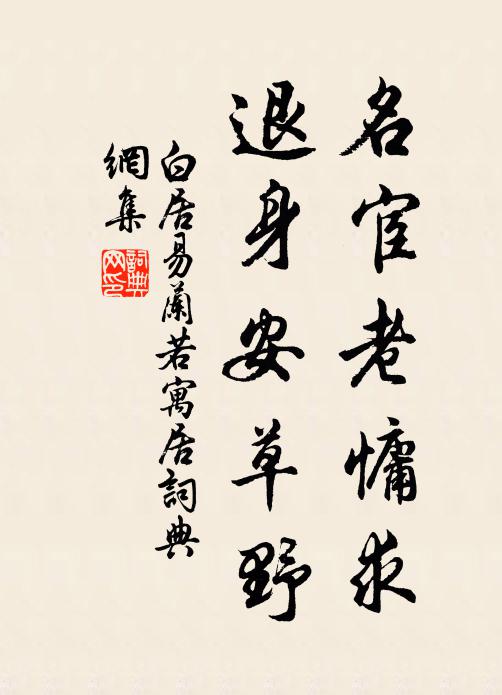 名宦老慵求
退身安草野
白居易蘭若寓居詞典
網集
詞典
网印